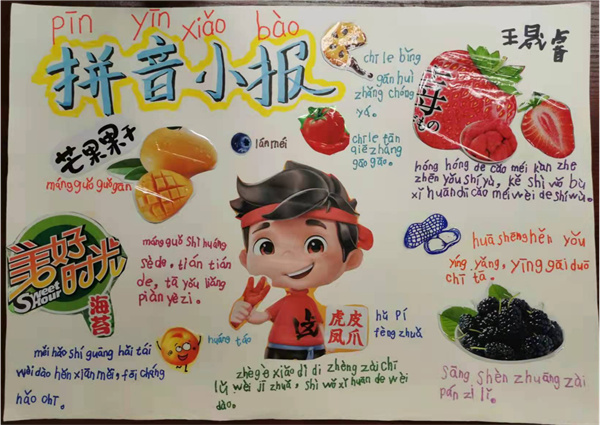 pīn yīn xiǎo bào
拼音小报
王晟睿
chī le bǐng
gān huì
zhǎng chóng
yá。
lán méi
chī le fān
qié zhǎng
gāo gāo。
芒果果干
máng guǒ guǒ gān
もの
hóng hóng de cǎo méi kàn zhe
zhēn yǒu shí yù, kě shì wǒ bù
xǐ huān chī cǎo méi wèi de shí wù。
huā shēng hěn yǒu
yíng yǎng, yīng gāi duō
chī tā。
máng guǒ shì huáng
sè de, tián tián
de, tā yǒu liǎng
piàn yè zi。
美好时光
Sweet Hour
海苔
měi hǎo shí guāng hǎi tái
wèi dào hěn xiān měi, fēi cháng
hǎo chī。
huáng táo
虎
虎皮凤爪
hǔ pí
fèng zhuǎ
zhè gè xiǎo dì di zhèng zài chī
lǔ wèi jī zhuǎ, shì wǒ xǐ huan de wèi
dào。
sāng shèn zhuāng zài
pán zi lǐ。